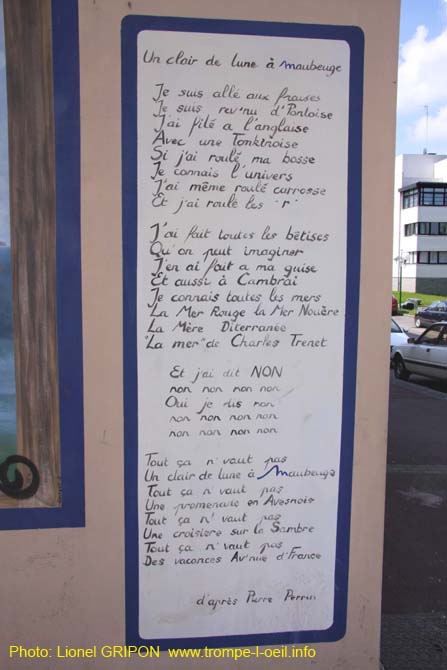 Un clair de lune à Maubeuge
Je suis allé aux fraises
Je suis rev'nu d'Pontoise
J'ai filé a l'anglaise
Avec une Tonkinoise
Si j'ai roulé ma bosse
Je connais l'univers
J'ai même roulé carrosse
Et j'ai roulé les "r"
J'ai fait toutes les bêtises
Qu'on peut imaginer
J'en ai fait a ma guise
Et aussi à Cambrai
Je connais toutes les mers
La Mer Rouge la Mer Nouère
La Mère Diterranée
"La mer" de Charles Trenet
Et j'ai dit NON
non non non non
Oui je dis non
non non non non
non non non non
Tout ça n'vaut pas
Un clair de lune à Maubeuge
Tout ça n'vaut pas
Une promenade en Avesnois
Tout ça n'vaut pas
Une croisière sur la Sambre
Tout ça n'vaut pas
Des vacances Av'nue d'France
d'après Pierre Perrin
Photo: Lionel GRIPON www.trompe-l-oeil.info